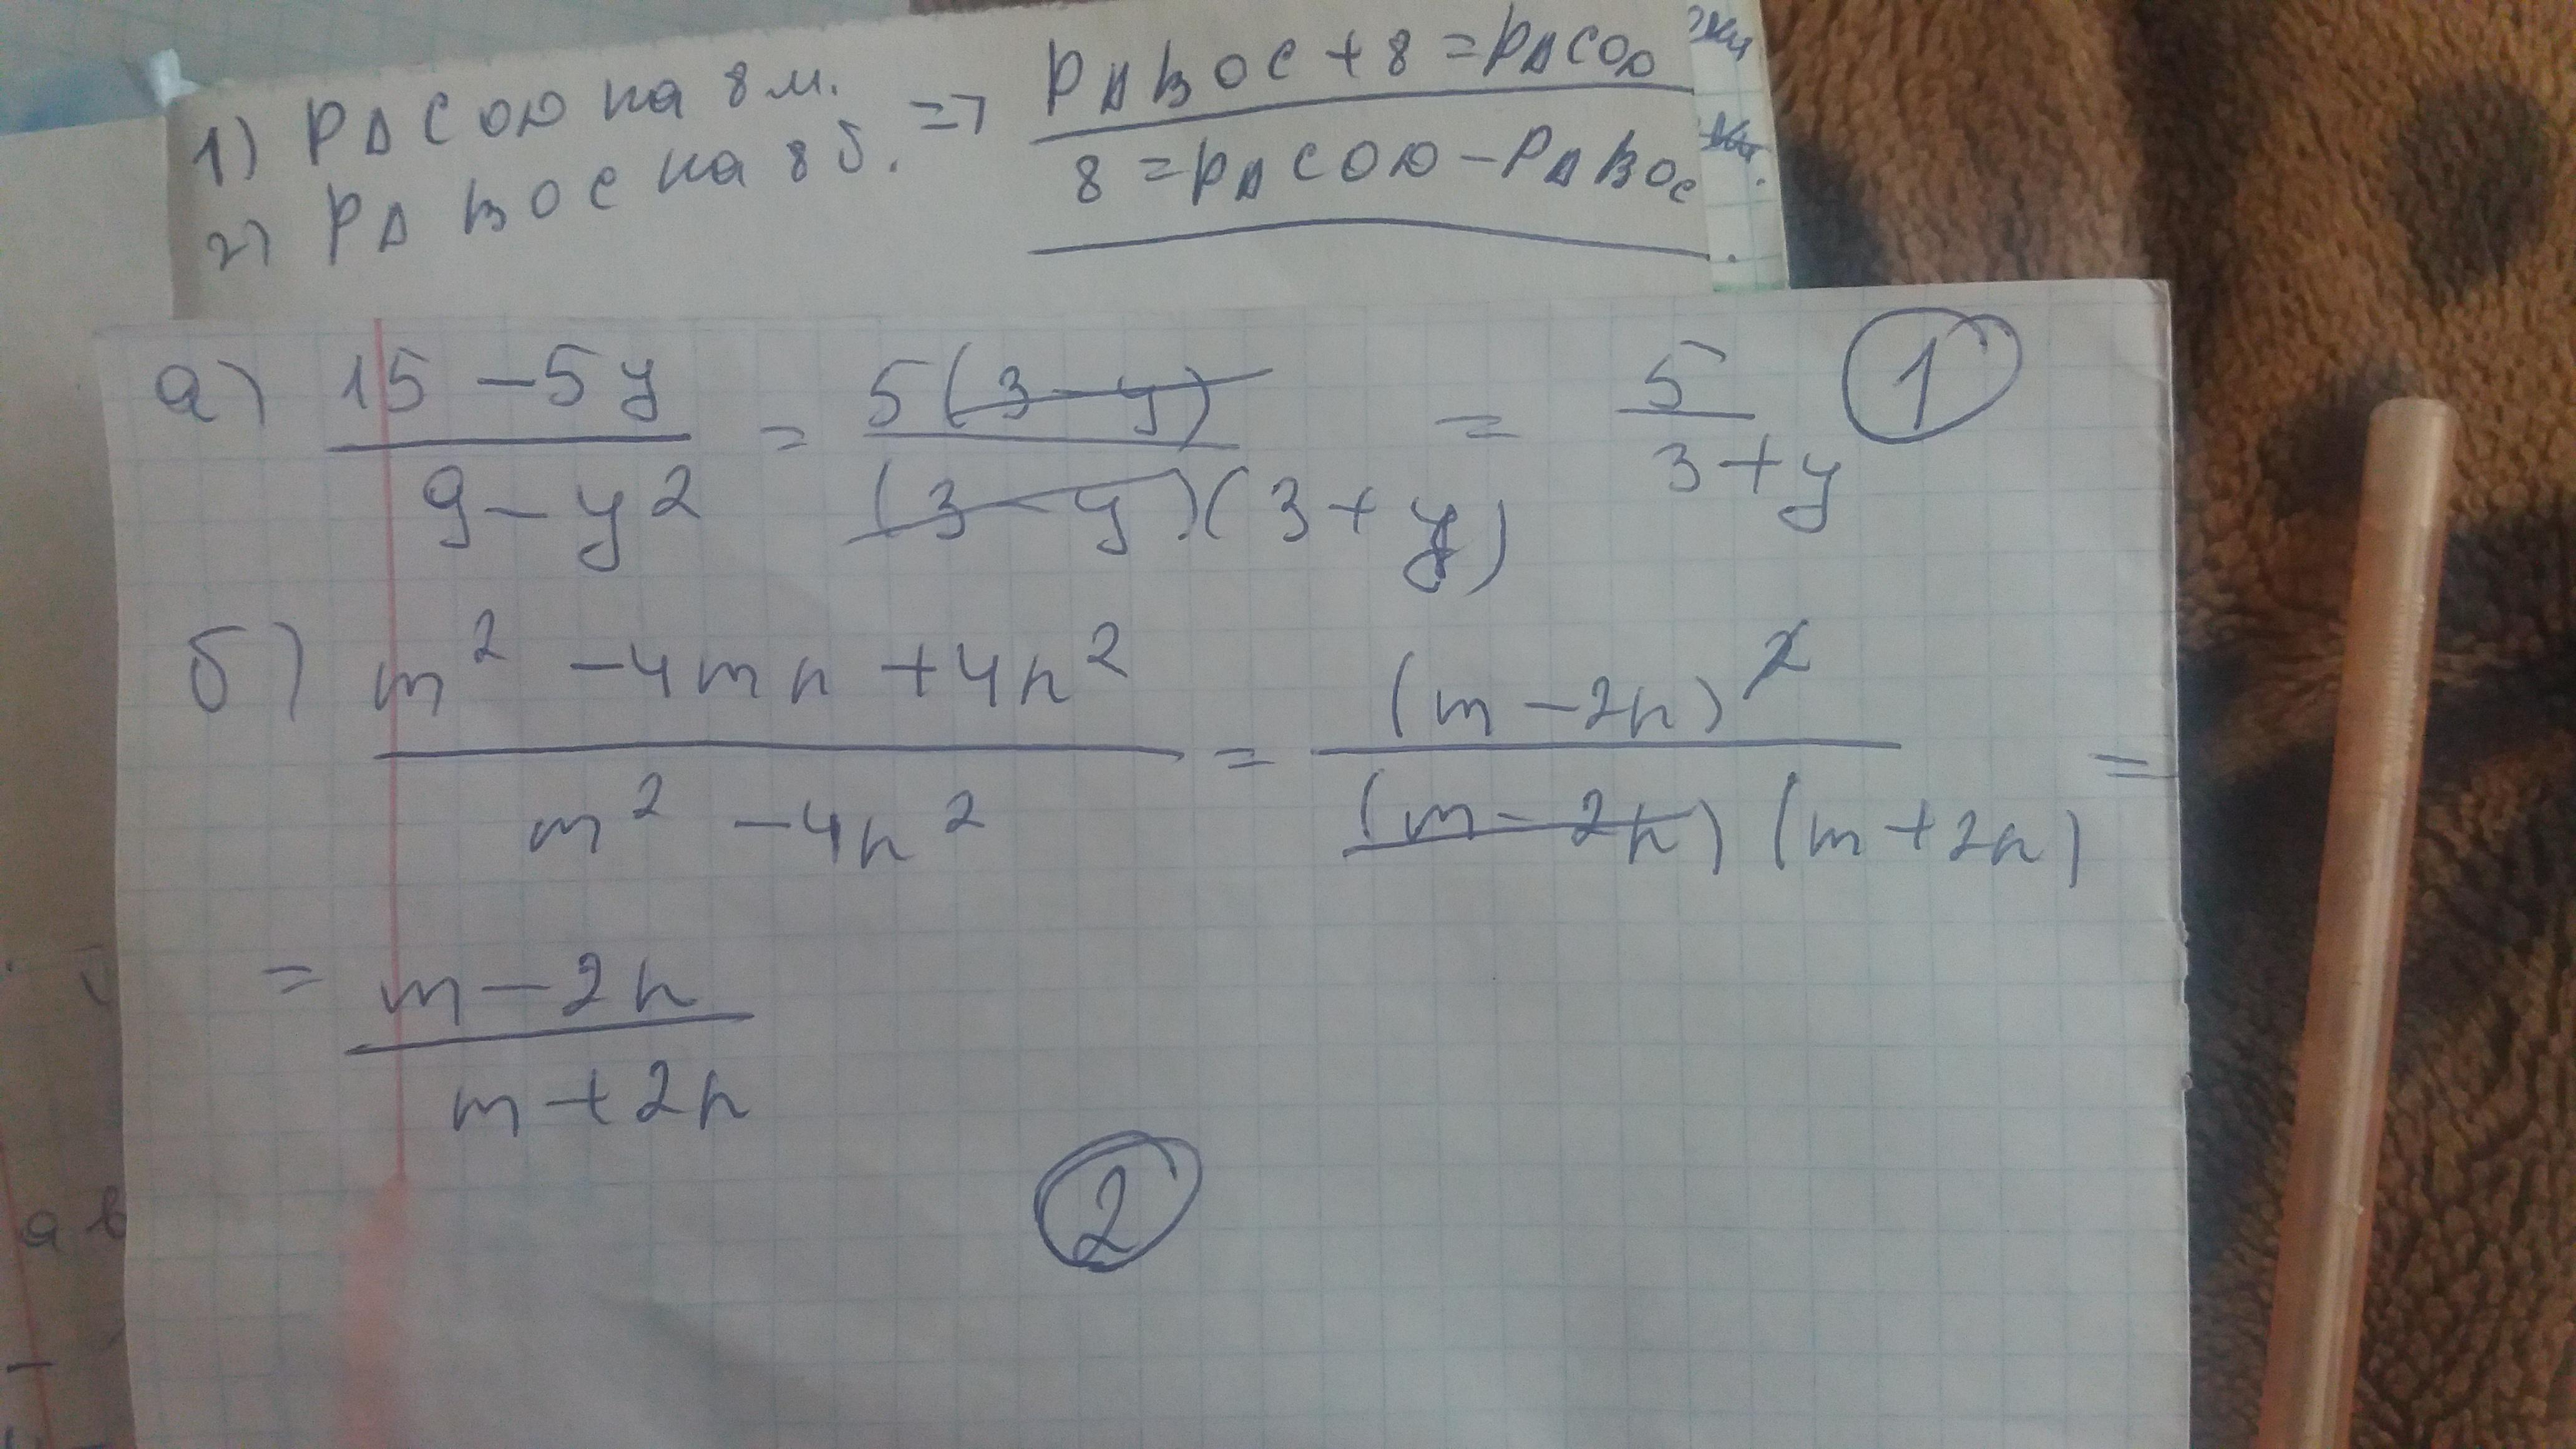 1) PΔCOD на 8 м. => PΔBOC + 8 = PΔCOD
2) PΔ BOC на 8 б. 8 = PΔCOD - PΔBOC
а) 15 - 5y / 9 - y2 = 5(3 - y) / (3 - y)(3 + y) = 5 / 3 + y 1
б) m² - 4mn + 4n² / m² - 4n² = (m - 2n)² / (m - 2n) (m + 2n) =
= m - 2n / m + 2n
2
а в